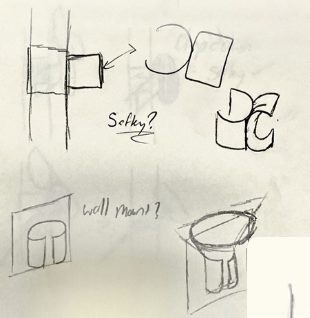 Safety?
wall mount?